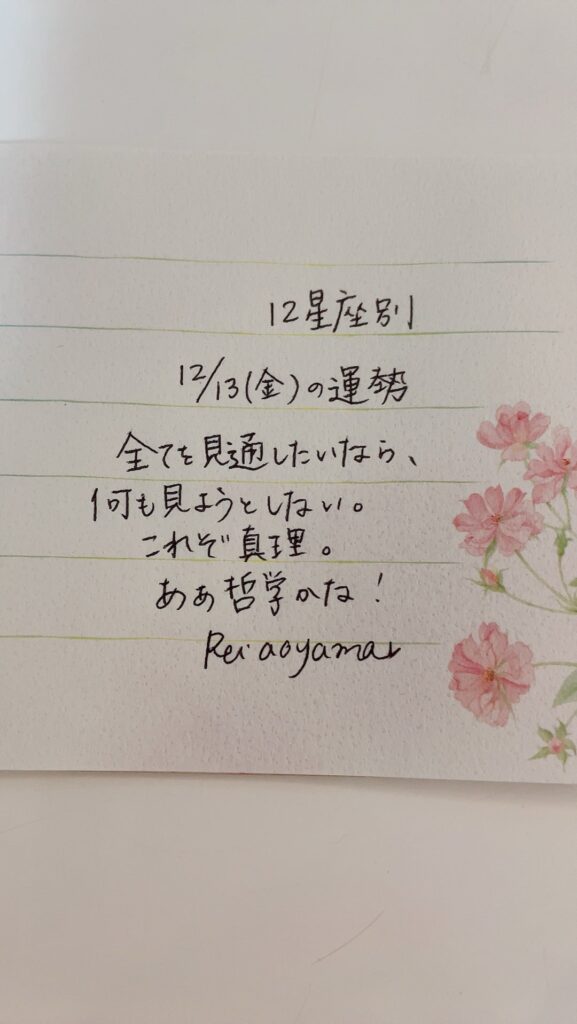 12星座別
12/13(金)の運勢
全てを見通したいなら、
何も見ようとしない。
これぞ真理。
ああ哲学かな！
Rei aoyama